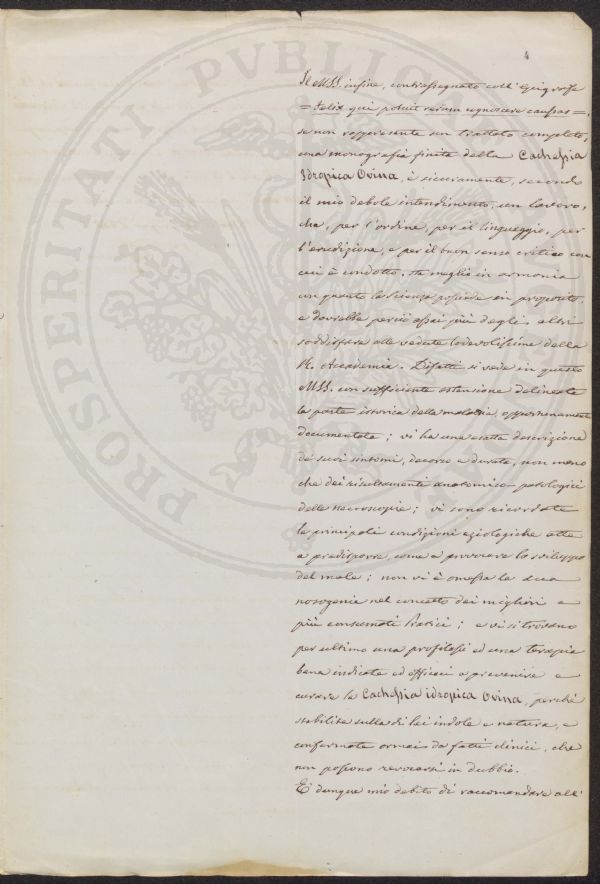 4
Il MSS. infine, contrassegnato coll'Epigrafe
= Felix qui potuit rerum cognoscere caussas =,
se non rappresenta un trattato completo,
una monografia finita della Cachessia
Idropica Ovina, è sicuramente, secondo
il mio debole intendimento, un lavoro,
che, per l'ordine, per il linguaggio, per
l'erudizione, e per il buon senso critico con
cui è condotto, sta meglio in armonia
con quanto la Scienza possiede in proposito,
e dovrebbe perciò assai più degli altri
soddisfare alle vedute lodevolissime della
R. Accademia. Difatti si vede in questo
MSS. con sufficiente estensione delineata
la parte istorica della malattia, opportunamente
documentata; vi ha una esatta descrizione
de' suoi sintomi, decorso e durata, non meno
che dei risultamenti anatomico-patologici
delle necroscopie; vi sono ricordate
le principali condizioni eziologiche atte
a predisporre, come a provocare lo sviluppo
del male; non vi è omessa la sua
nosogenia nel concetto dei migliori e
più consumati Pratici; e vi si trovano
per ultimo una profilassi ed una terapia
bene indicate ed efficaci a prevenire e
curare la Cachessia idropica Ovina, perchè
stabilite sulla di lei indole e natura, e
confermate ormai da fatti clinici, che
non possono revocarsi in dubbio.
E' dunque mio debito di raccomandare all'
PROSPERITATI PVBLICAE